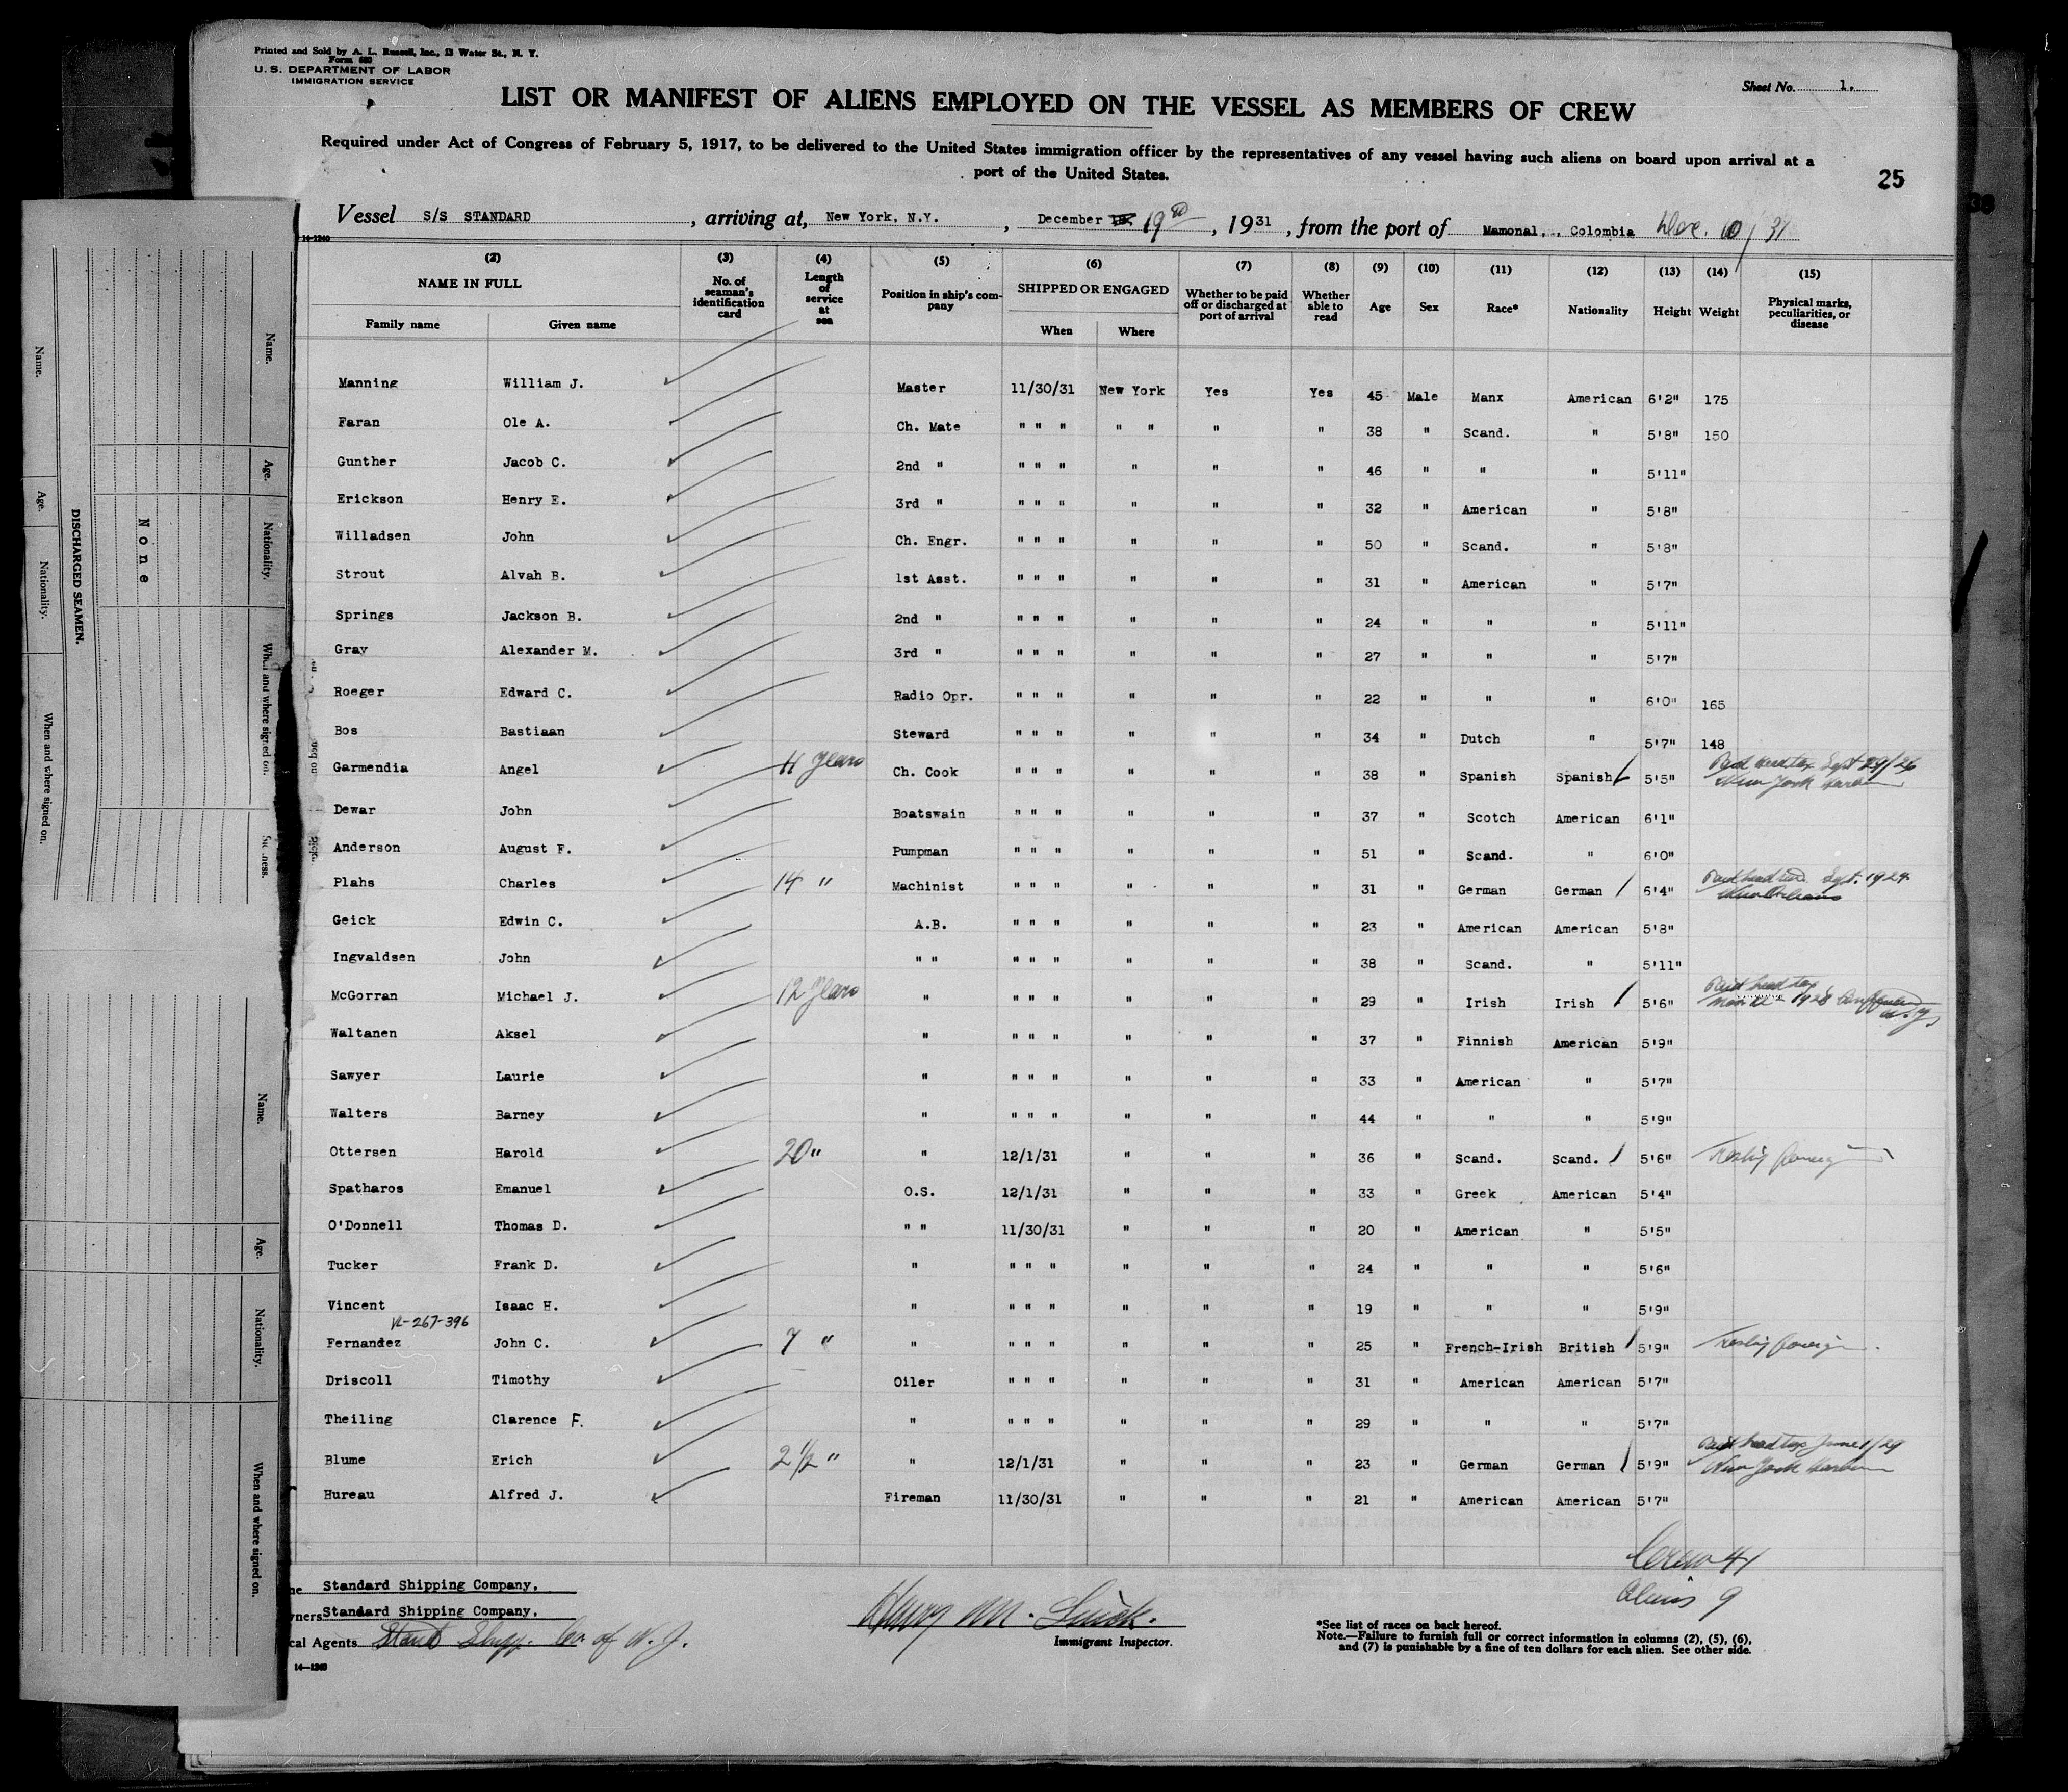 Printed and Sold by A. L. Russell, Inc., 13 Water St., N. Y.
Form 680
U. S. DEPARTMENT OF LABOR
IMMIGRATION SERVICE
Sheet No. 1.
LIST OR MANIFEST OF ALIENS EMPLOYED ON THE VESSEL AS MEMBERS OF CREW
Required under Act of Congress of February 5, 1917, to be delivered to the United States immigration officer by the representatives of any vessel having such aliens on board upon arrival at a
port of the United States.
25
Vessel S/S STANDARD, arriving at, New York, N.Y., December 19th, 1931, from the port of Mamonal,, Colombia Dec. 10/31
14-1240
(2) (3) (4) (5) (6) (7) (8) (9) (10) (11) (12) (13) (14) (15)
NAME IN FULL No. of seaman's identification card Length of service at sea Position in ship's company SHIPPED OR ENGAGED Whether to be paid off or discharged at port of arrival Whether able to read Age Sex Race* Nationality Height Weight Physical marks, peculiarities, or disease
Family name Given name When Where
Manning William J. Master 11/30/31 New York Yes Yes 45 Male Manx American 6'2" 175
Faran Ole A. Ch. Mate " " " " " " " 38 " Scand. " 5'8" 150
Gunther Jacob C. 2nd " " " " " " " 46 " " " 5'11"
Erickson Henry E. 3rd " " " " " " " 32 " American " 5'8"
Willadsen John Ch. Engr. " " " " " " 50 " Scand. " 5'8"
Strout Alvah B. 1st Asst. " " " " " " 31 " American " 5'7"
Springs Jackson B. 2nd " " " " " " " 24 " " " 5'11"
Gray Alexander M. 3rd " " " " " " " 27 " " " 5'7"
Roeger Edward C. Radio Opr. " " " " " " 22 " " " 6'0" 165
Bos Bastiaan Steward " " " " " " 34 " Dutch " 5'7" 148
Garmendia Angel 11 years Ch. Cook " " " " " " 38 " Spanish Spanish 5'5" Paid head tax Sept 29/26
New York Harbor
Dewar John Boatswain " " " " " " 37 " Scotch American 6'1"
Anderson August F. Pumpman " " " " " " 51 " Scand. " 6'0"
Plahs Charles 14 " Machinist " " " " " " 31 " German German 6'4" Paid head Sept. 1924
New Orleans
Geick Edwin C. A.B. " " " " " " 23 " American American 5'8"
Ingvaldsen John " " " " " " " " 38 " Scand. " 5'11"
McGorran Michael J. 12 years " " " " " " " 29 " Irish Irish 5'6" Paid head tax
1928 N.Y.
Waltanen Aksel " " " " " " " 37 " Finnish American 5'9"
Sawyer Laurie " " " " " " " 33 " American " 5'7"
Walters Barney " " " " " " " 44 " " " 5'9"
Ottersen Harold 20 " " 12/1/31 " " " 36 " Scand. Scand. 5'6" foreign
Spatharos Emanuel O.S. 12/1/31 " " " 33 " Greek American 5'4"
O'Donnell Thomas D. " " 11/30/31 " " " 20 " American " 5'5"
Tucker Frank D. " " " " " " " 24 " " " 5'6"
Vincent Isaac H. " " " " " " " 19 " " " 5'9"
VL-267-396
Fernandez John C. 7 " " " " " " " " 25 " French-Irish British 5'9" foreign
Driscoll Timothy Oiler " " " " " " 31 " American American 5'7"
Theiling Clarence F. " " " " " " " 29 " " " 5'7"
Blume Erich 2 1/2 " " 12/1/31 " " " 23 " German German 5'9" Paid head tax June 1/29
New York Harbor
Hureau Alfred J. Fireman 11/30/31 " " " 21 " American American 5'7"
Crew 41
Aliens 9
ne Standard Shipping Company,
wners Standard Shipping Company,
cal Agents Stand Shipp. Co. of N. J.
14-1240
Henry M.
Immigrant Inspector.
*See list of races on back hereof.
Note.—Failure to furnish full or correct information in columns (2), (5), (6),
and (7) is punishable by a fine of ten dollars for each alien. See other side.
DISCHARGED SEAMEN.
None
Name. Age. Nationality. When and where signed on.
Name. Age. Nationality. When and where signed on.
Name. Age. Nationality. When and where signed on.